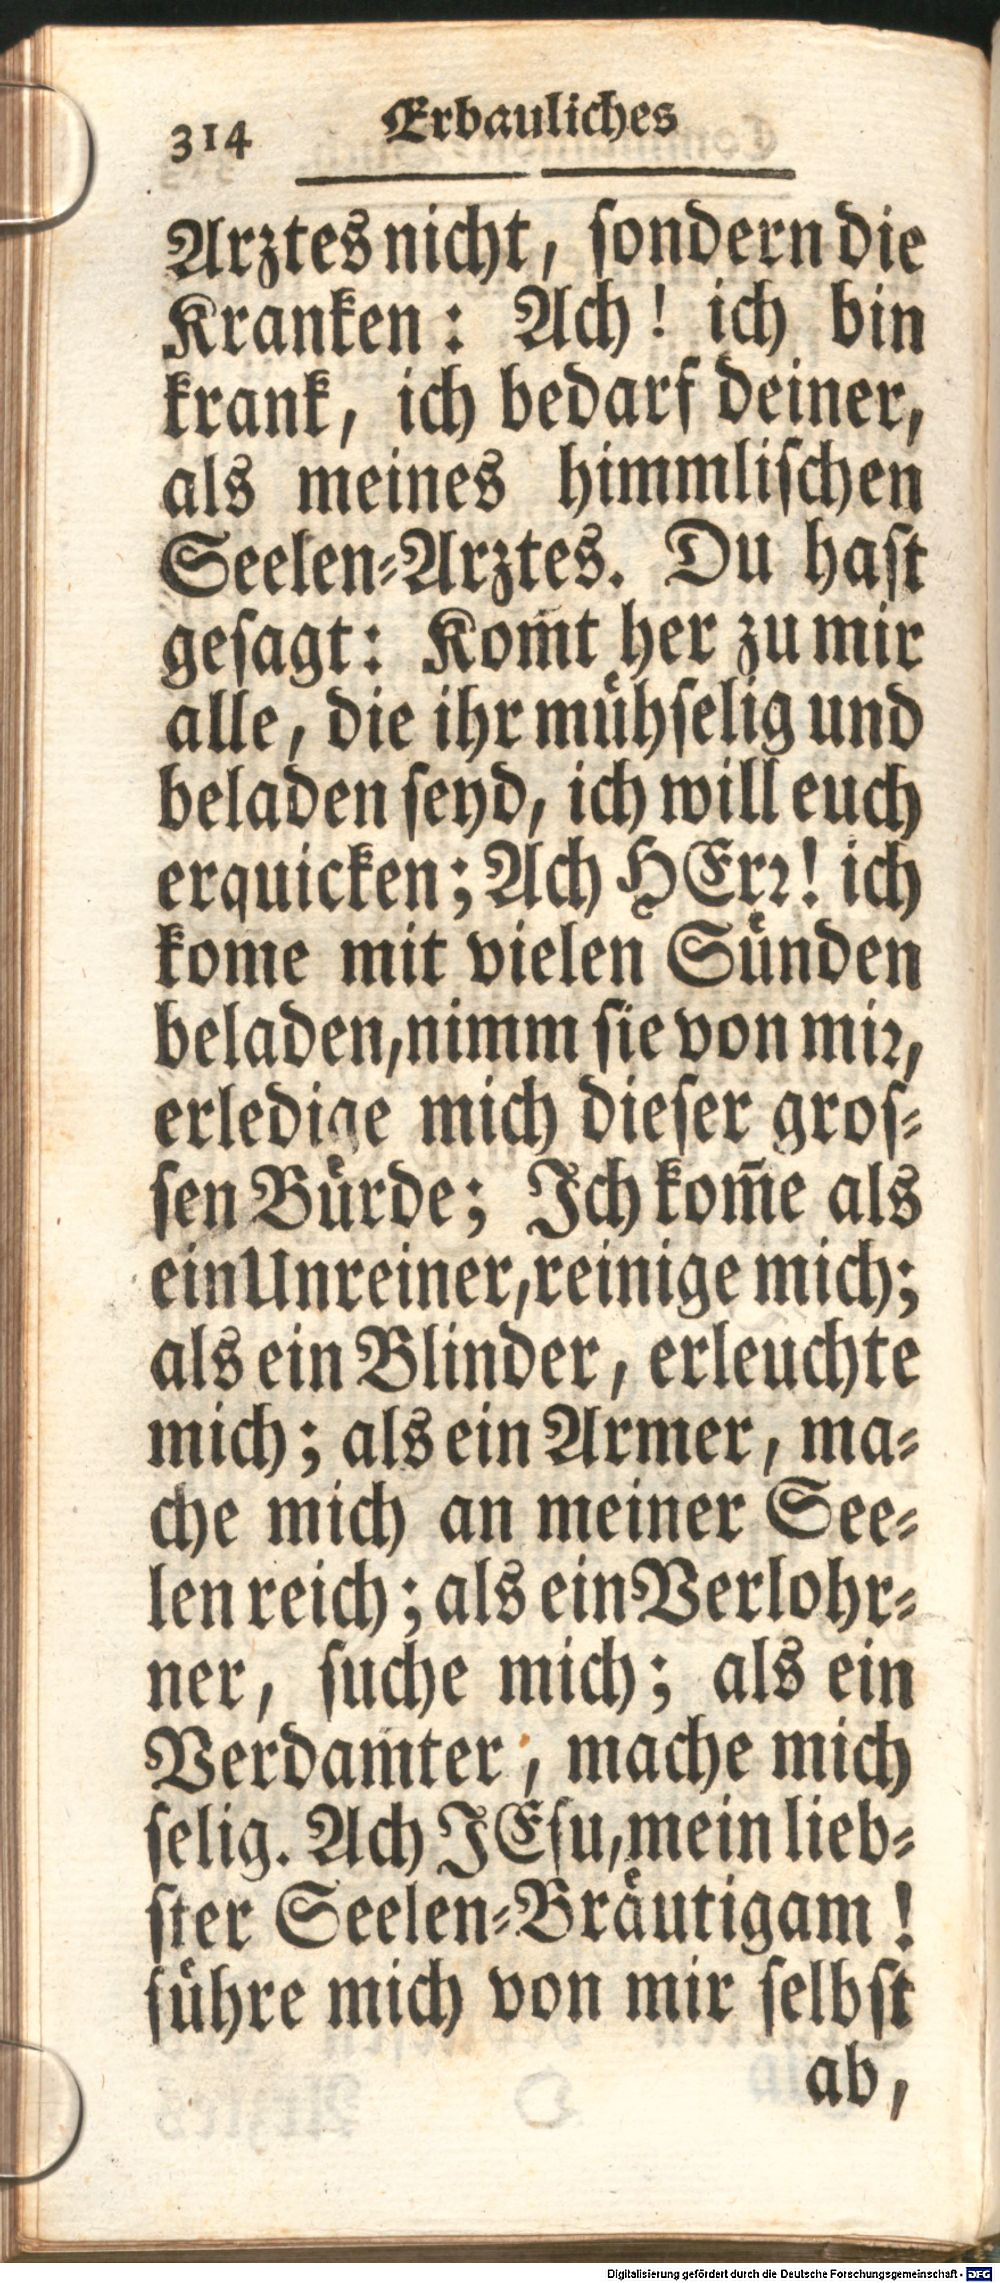 314 Erbauliches
Arztes nicht, ſondern die
Kranken: Ach! ich bin
krank, ich bedarf deiner,
als meines himmliſchen
Seelen-Arztes. Du haſt
geſagt: Kom̃t her zu mir
alle, die ihr muͤhſelig und
beladen ſeyd, ich will euch
erquicken; Ach HErꝛ! ich
kome mit vielen Suͤnden
beladen, nimm ſie von miꝛ,
erledige mich dieſer groſ-
ſen Buͤrde; Ich kom̃e als
ein Unreiner, reinige mich;
als ein Blinder, erleuchte
mich; als ein Armer, ma-
che mich an meiner See-
len reich; als ein Verlohr-
ner, ſuche mich; als ein
Verdam̃ter, mache mich
ſelig. Ach JEſu, mein lieb-
ſter Seelen-Braͤutigam!
fuͤhre mich von mir ſelbſt
ab,
Digitalisierung gefördert durch die Deutsche Forschungsgemeinschaft - DFG